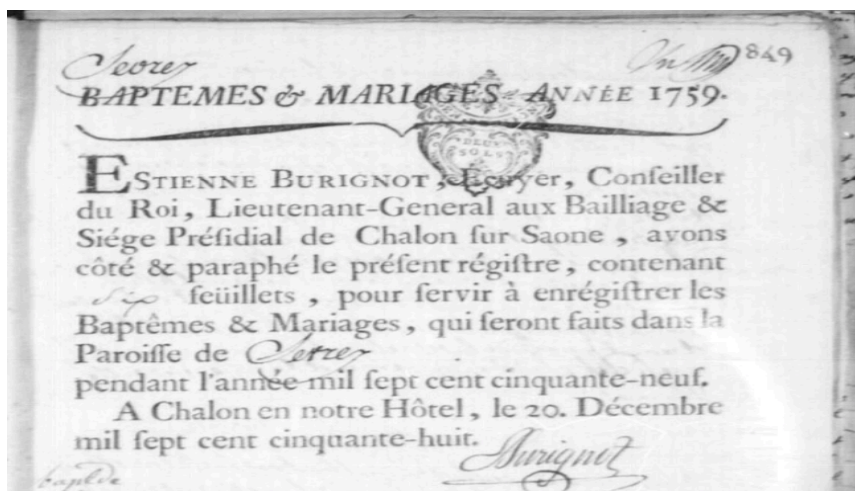 Sevrey
849
BAPTEMES & MARIAGES ANNÉE 1759.
DEUX
SOLS
ESTIENNE BURIGNOT, Ecuyer, Conſeiller
du Roi, Lieutenant-General aux Bailliage &
Siége Préſidial de Chalon ſur Saone, avons
côté & paraphé le préſent régiſtre, contenant
ſix feüillets, pour ſervir à enrégiſtrer les
Baptêmes & Mariages, qui ſeront faits dans la
Paroiſſe de Sevrey
pendant l'année mil ſept cent cinquante-neuf.
A Chalon en notre Hôtel, le 20. Décembre
mil ſept cent cinquante-huit.
Burignot